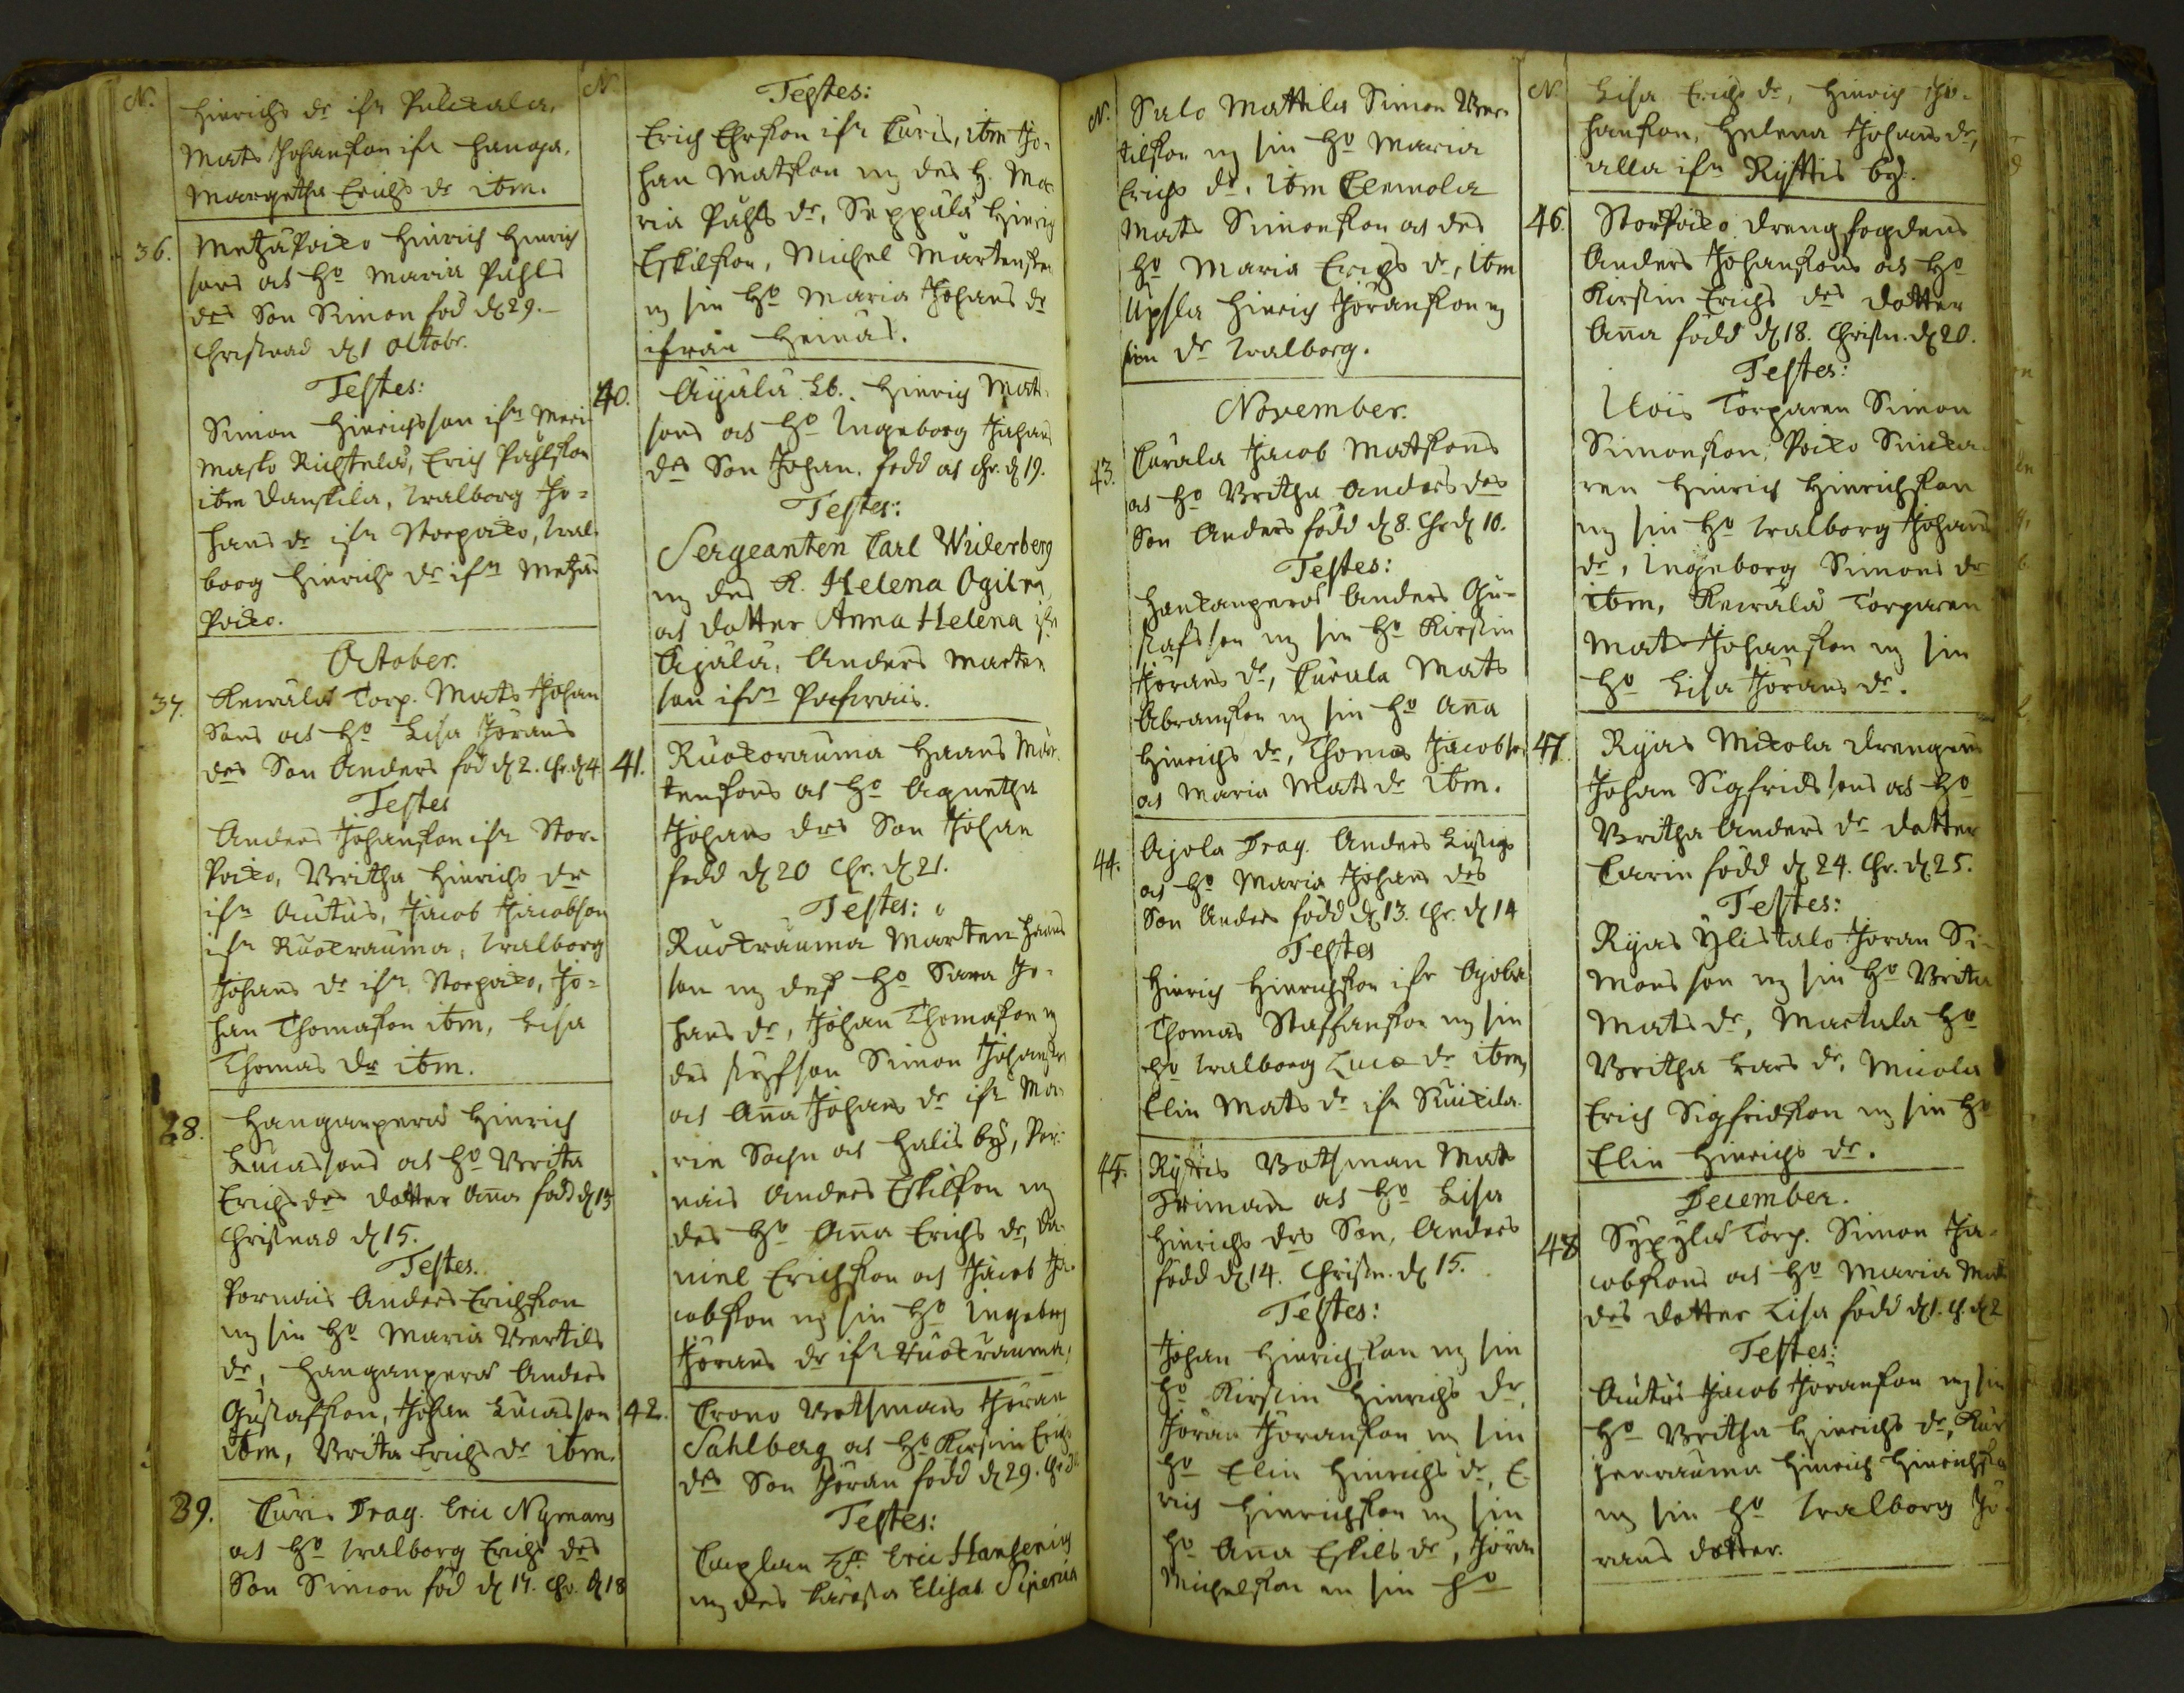 N.
Hinrichs dr ifr Pulckala,
Mats Johansson ifr Hanga,
Margetha Erichs dr ibm.
36. Metzäpoiko Hinrich Hinrich
sons och Ho Maria Påhls
drs Son Simon föd d 29.
Christnad d 1 octobr.
Testes:
Simon Hinrichsson ifr Meri
masko Richtelä, Erich Påhlsson
ibm Danskila, Walborg Jo=
hans dr ifr Storpoiko, Wal-
borg Hinrichs dr ifrn Metzä
Poiko.
October.
37. Keivälä Torp. Mats Johan
Sons och Ho Lisa Jörans
drs Son Anders föd d 2. Chr. d 4
Testes
Anders Johansson ifr Stor-
Poiko, Britha Hinrichs dr
ifr Autus, Jacob Jacobson
ifr Ruokrauma, Walborg
Johans dr ifr Storpoiko, Jo=
han Thomasson ibm, Lisa
Thomas dr ibm.
38. Hanganperä Hinrich
Lucassons och Ho Brita
Erichs drs dotter Anna född d 13
Christnad d 15.
Testes.
Pornais Anders Erichsson
m sin Ho Maria Bertils
dr, Hanganperä Anders
Gustafsson, Johan Lucasson
ibm, Brita Erichs dr ibm.
39. Curis Drag. Eric Nymans
och Ho Walborg Erichs drs
Son Simon föd d 17. Chr. d 18
N
Testes:
Erich Ersson ifr Curis, ibm Jo-
han Matsson m des H. Ma
ria Påhls dr, Seppälä Hinrich
Eskilsson, Michel Mårtensson
m sin Ho Maria Johans dr
ifrån Heinäs.
40. Äijälä Lb. Hinrich Mats
sons och Ho Ingeborg Johans
drs Son Johan. född och Chr. d 19.
Testes:
Sergeanten Carl Widerberg
m des K. Helena Ogilvia
och dotter Anna Helena ifr
Äijälä, Anders Marten
son ifrn Pafwais.
41. Ruokorauma Haans Mår-
tensons och Ho Agnetha
Johans drs Son Johan
född d 20 Chr. d 21.
Testes:
Ruokrauma Marten Haans
son m des Ho Sara Jo-
hans dr, Johan Thomasson m
des styfson Simon Johansson
och Anna Johans dr ifr Ma-
rie Sochn och Halis by, Por-
nais Anders Eskilsson m
des Ho Anna Erichs dr, Da-
niel Erichsson och Jacob Ja-
cobsson m sin Ho Ingeborg
Jörans dr ifr Ruokrauma,
42. Crono Botsmans Jöran
Sahlberg och Ho Kirstin Erichs
drs Son Jöran född d 29. Chr d
Testes:
Caplan Hr Eric Hansenius
m des Käresta Elisab. Piperia
N.
Salo Mattila Simon Ber-
tilsson m sin Ho Maria
Erichs dr, ibm Clemola
Mats Simonsson och des
Ho Maria Erichs dr, ibm
Upsla Hinrich Jöransson m
sin dr Walborg.
November.
43. Curala Jacob Matssons
och Ho Britha Anders drs
Son Anders född d 8. Chr d 10.
Testes:
Hankanperä Anders Gu-
stafsson m sin Ho Kirstin
Jörans dr, Curala Mats
Abramsson m sin Ho Anna
Hinrichs dr, Thomas Jacobson
och Maria Mats dr ibm.
44. Ajola Drag. Anders Listigs
och Ho Maria Johans drs
Son Anders född d 13. Chr. d 14
Testes
Hinrich Hinrichsson ifr Ajola
Thomas Staffansson m sin
Ho Walborg Luca dr ibm,
Elin Mats dr ifr Suikila.
45. Ryttis Botsman Mats
Triman och Ho Lisa
Hinrichs drs Son, Anders
född d 14. Christn. d 15.
Testes:
Johan Hinrichsson m sin
Ho Kirstin Hinrichs dr,
Jöran Jöransson m sin
Ho Elin Hinrichs dr, E-
rich Hinrichsson m sin
Ho Anna Eskils dr, Jöran
Michelsson m sin Ho
N
Lisa Erichs dr, Hinrich Jo-
hansson, Helena Johans dr,
alla ifrn Ryttis by.
46. Storpoiko drengfogdens
Anders Johanssons och Ho
Kirstin Erichs drs dotter
Anna född d 18. Christn. d 20.
Testes:
Uois Torparen Simon
Simonsson, Poiko Sucka-
ren Hinrich Hinrichsson
m sin Ho Walborg Johans
dr, Ingeborg Simons dr
ibm, Keivälä Torparen
Mats Johansson m sin
Ho Lisa Jörans dr.
47. Ryas Mickola drengens
Johan Sigfridssons och Ho
Britha Anders dr dotter
Carin född d 24. Chr. d 25.
Testes:
Ryas Ylistalo Jöran Si-
monsson m sin Ho Brita
Mats dr, Martala Ho
Britha Lars dr, Micola
Erich Sigfridsson m sin Ho
Elin Hinrichs dr.
December.
48 Sypylä Torp. Simon Ja-
cobssons och Ho Maria Mats
drs dotter Lisa född d 1. Ch. d 2
Testes:
Autus Jacob Jöransson m sin
Ho Britha Hinrichs dr, Kur-
jenrauma Hinrich Hinrichsson
m sin Ho Walborg Jö-
rans dotter.